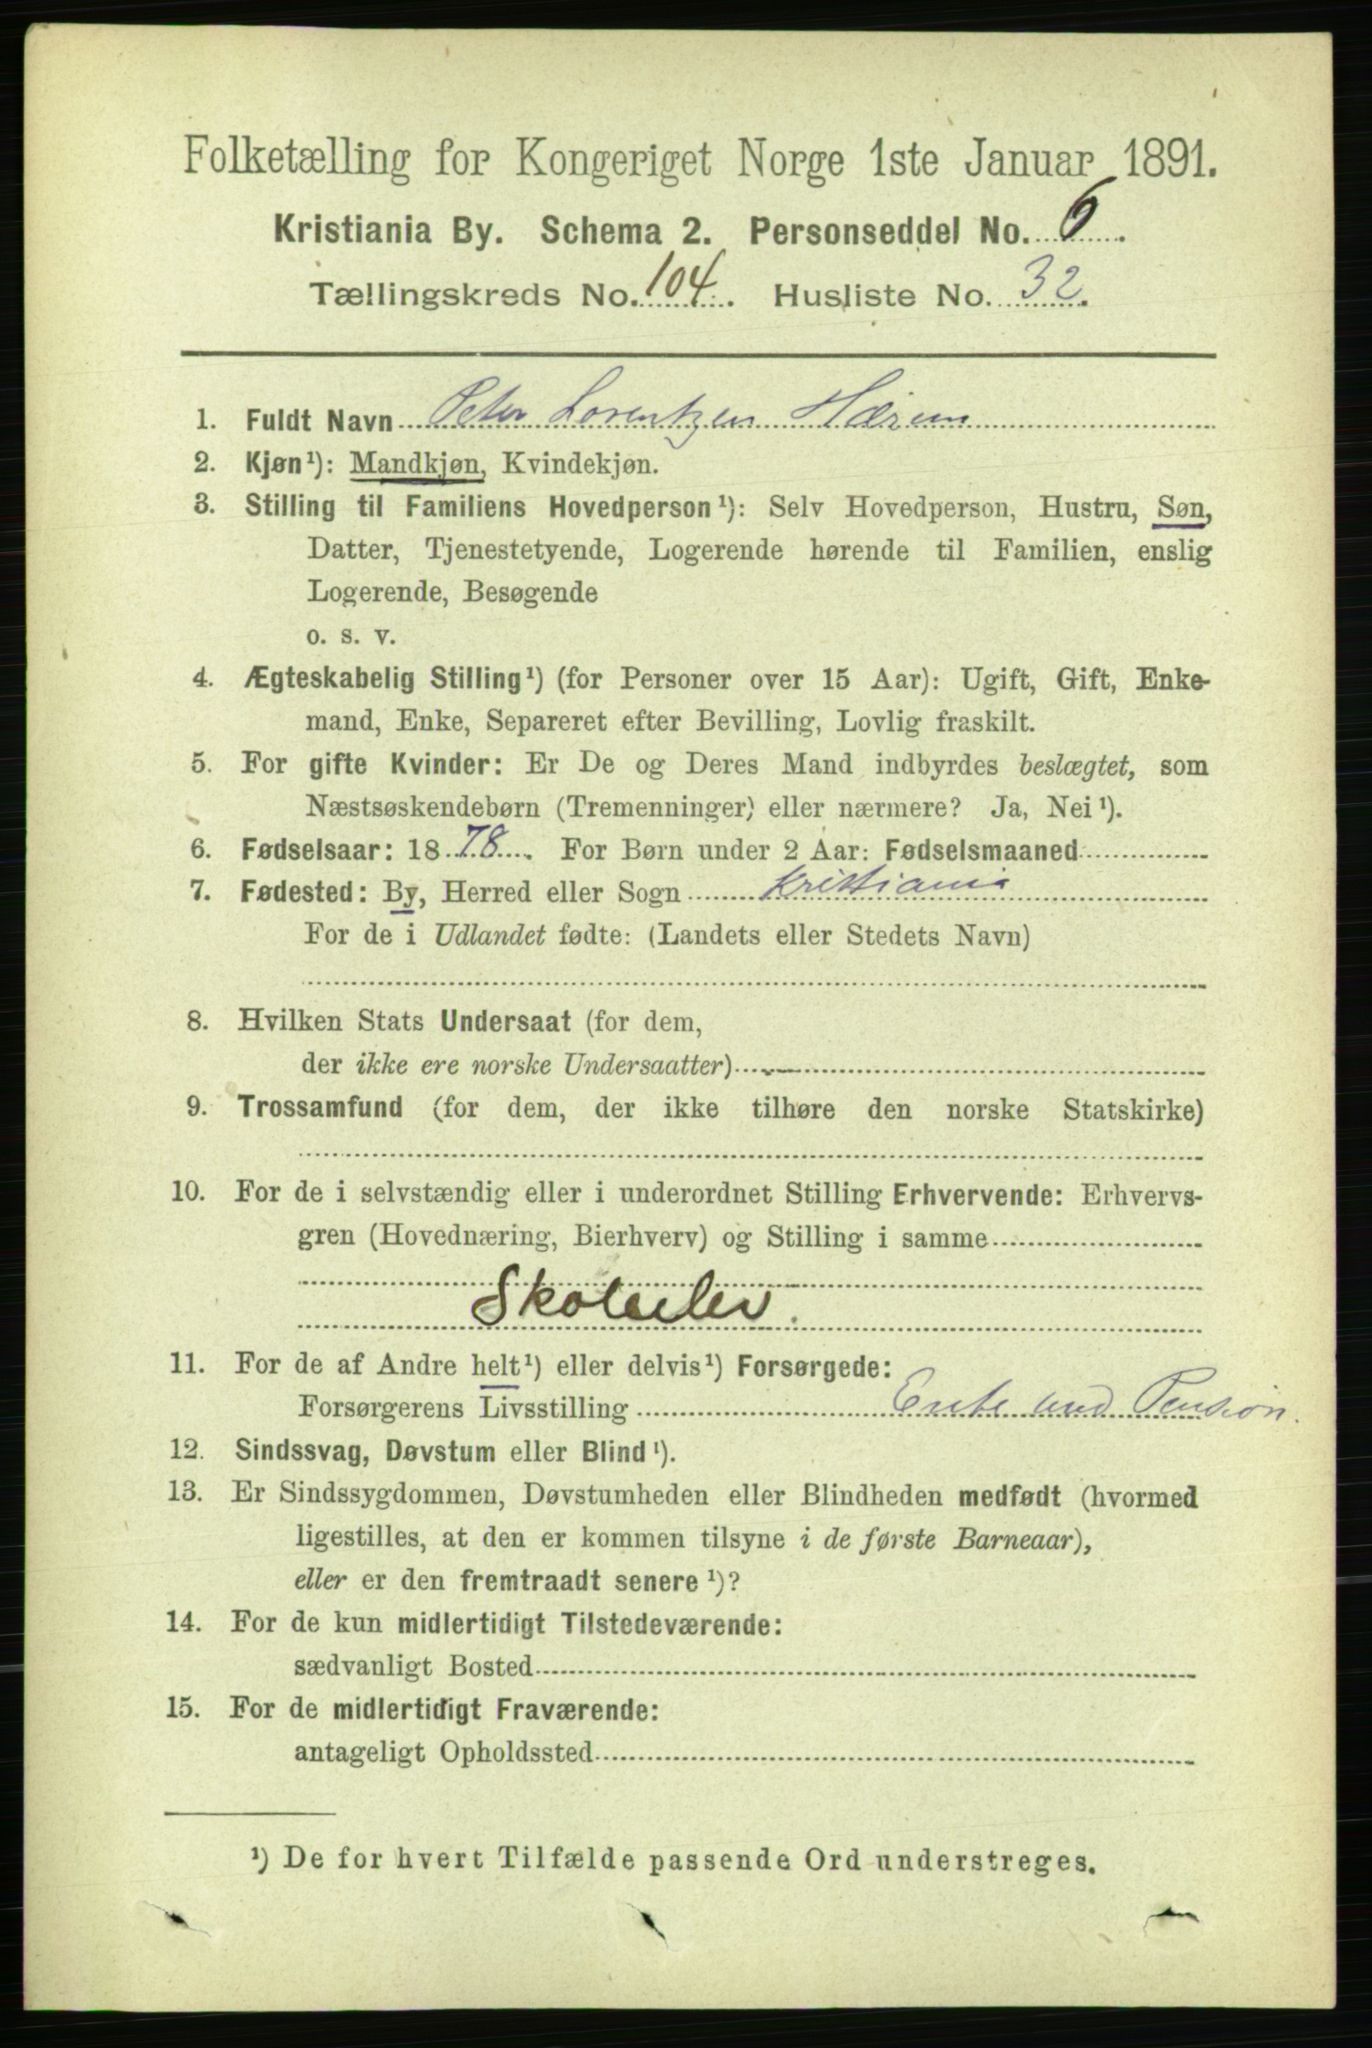 Folketælling for Kongeriget Norge 1ste Januar 1891.
Kristiania By. Schema 2. Personseddel No. 6.
Tællingskreds No. 104. Husliste No. 32.
1. Fuldt Navn Peter Lorentzen Hærem
2. Kjøn¹): Mandkjøn, Kvindekjøn.
3. Stilling til Familiens Hovedperson¹): Selv Hovedperson, Hustru, Søn,
Datter, Tjenestetyende, Logerende hørende til Familien, enslig
Logerende, Besøgende
o. s. v.
4. Ægteskabelig Stilling¹) (for Personer over 15 Aar): Ugift, Gift, Enke-
mand, Enke, Separeret efter Bevilling, Lovlig fraskilt.
5. For gifte Kvinder: Er De og Deres Mand indbyrdes beslægtet, som
Næstsøskendebørn (Tremenninger) eller nærmere? Ja, Nei¹).
6. Fødselsaar: 1878. For Børn under 2 Aar: Fødselsmaaned
7. Fødested: By, Herred eller Sogn Kristiania
For de i Udlandet fødte: (Landets eller Stedets Navn)
8. Hvilken Stats Undersaat (for dem,
der ikke ere norske Undersaatter)
9. Trossamfund (for dem, der ikke tilhøre den norske Statskirke)
10. For de i selvstændig eller i underordnet Stilling Erhvervende: Erhvervs-
gren (Hovednæring, Bierhverv) og Stilling i samme
Skoleelev.
11. For de af Andre helt¹) eller delvis¹) Forsørgede:
Forsørgerens Livsstilling Enke med Pension.
12. Sindssvag, Døvstum eller Blind¹).
13. Er Sindssygdommen, Døvstumheden eller Blindheden medfødt (hvormed
ligestilles, at den er kommen tilsyne i de første Barneaar),
eller er den fremtraadt senere¹)?
14. For de kun midlertidigt Tilstedeværende:
sædvanligt Bosted
15. For de midlertidigt Fraværende:
antageligt Opholdssted
¹) De for hvert Tilfælde passende Ord understreges.